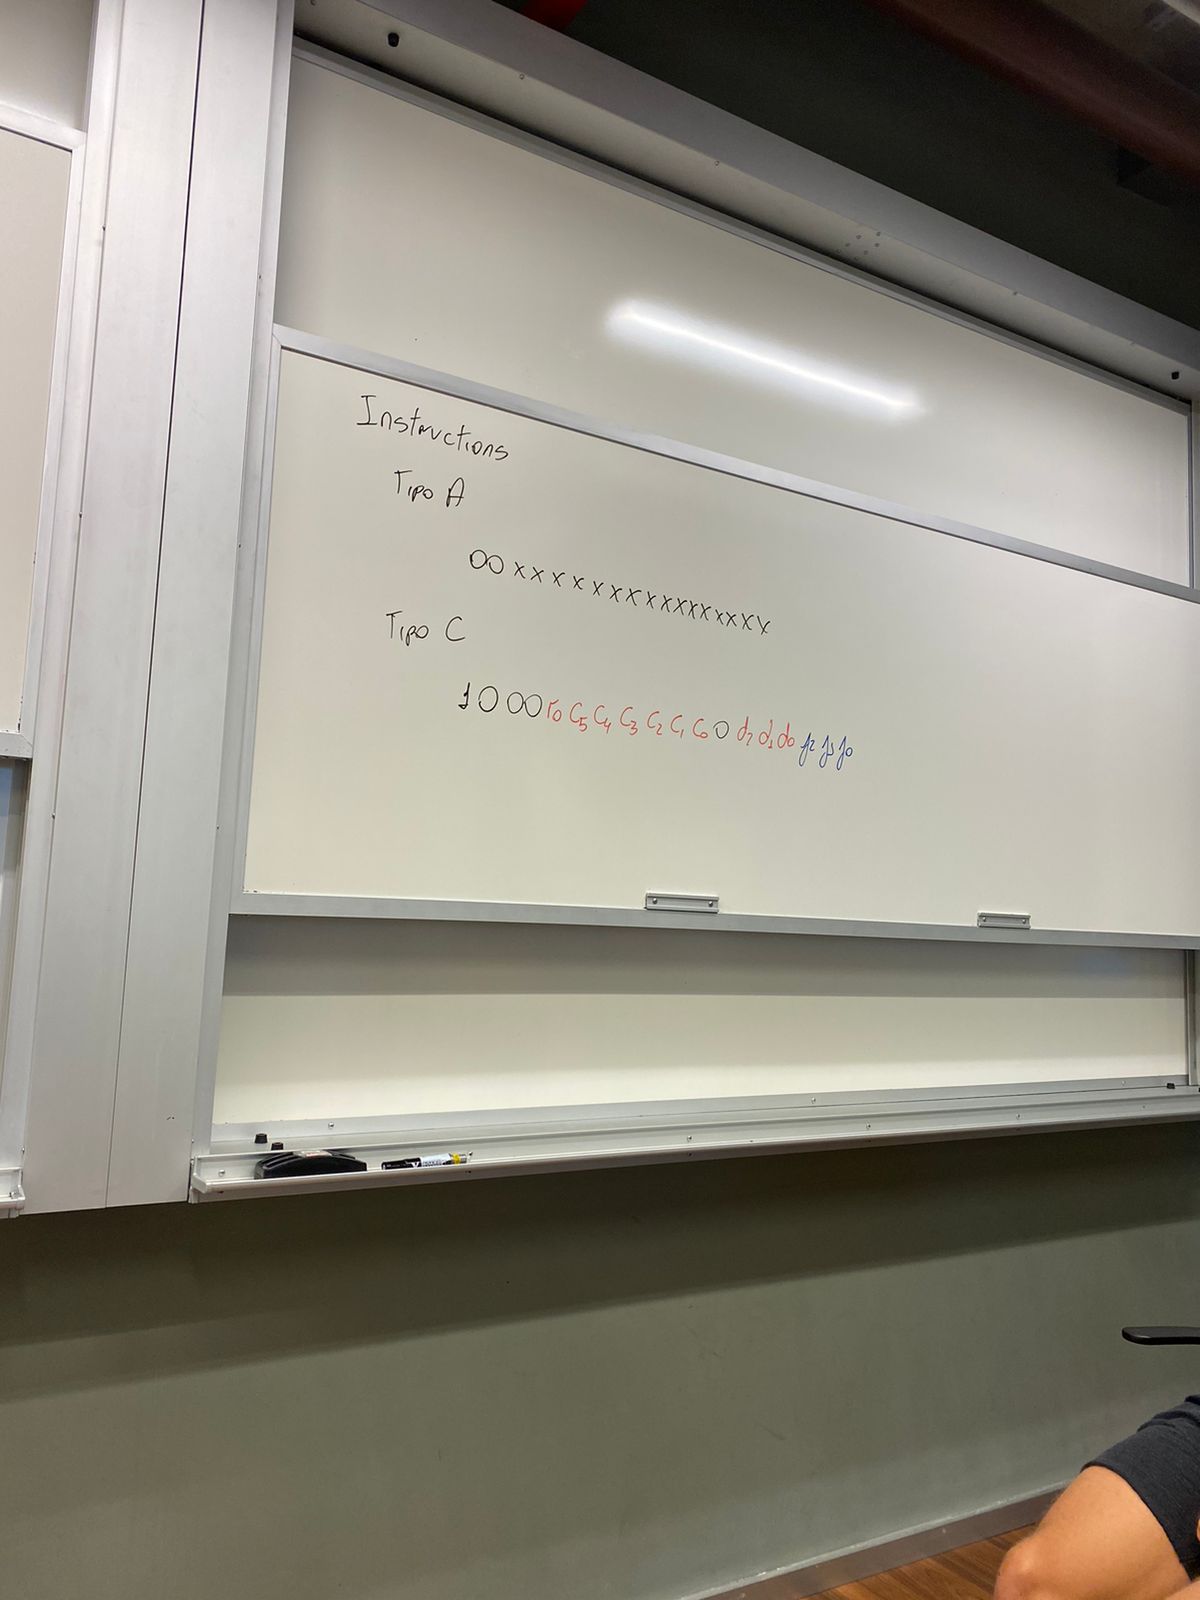 Instructions
Tipo A
00xxxxxxxxxxxxxxxx
Tipo C
1000r0c5c4c3c2c1c00d2d1d0j2j1j0